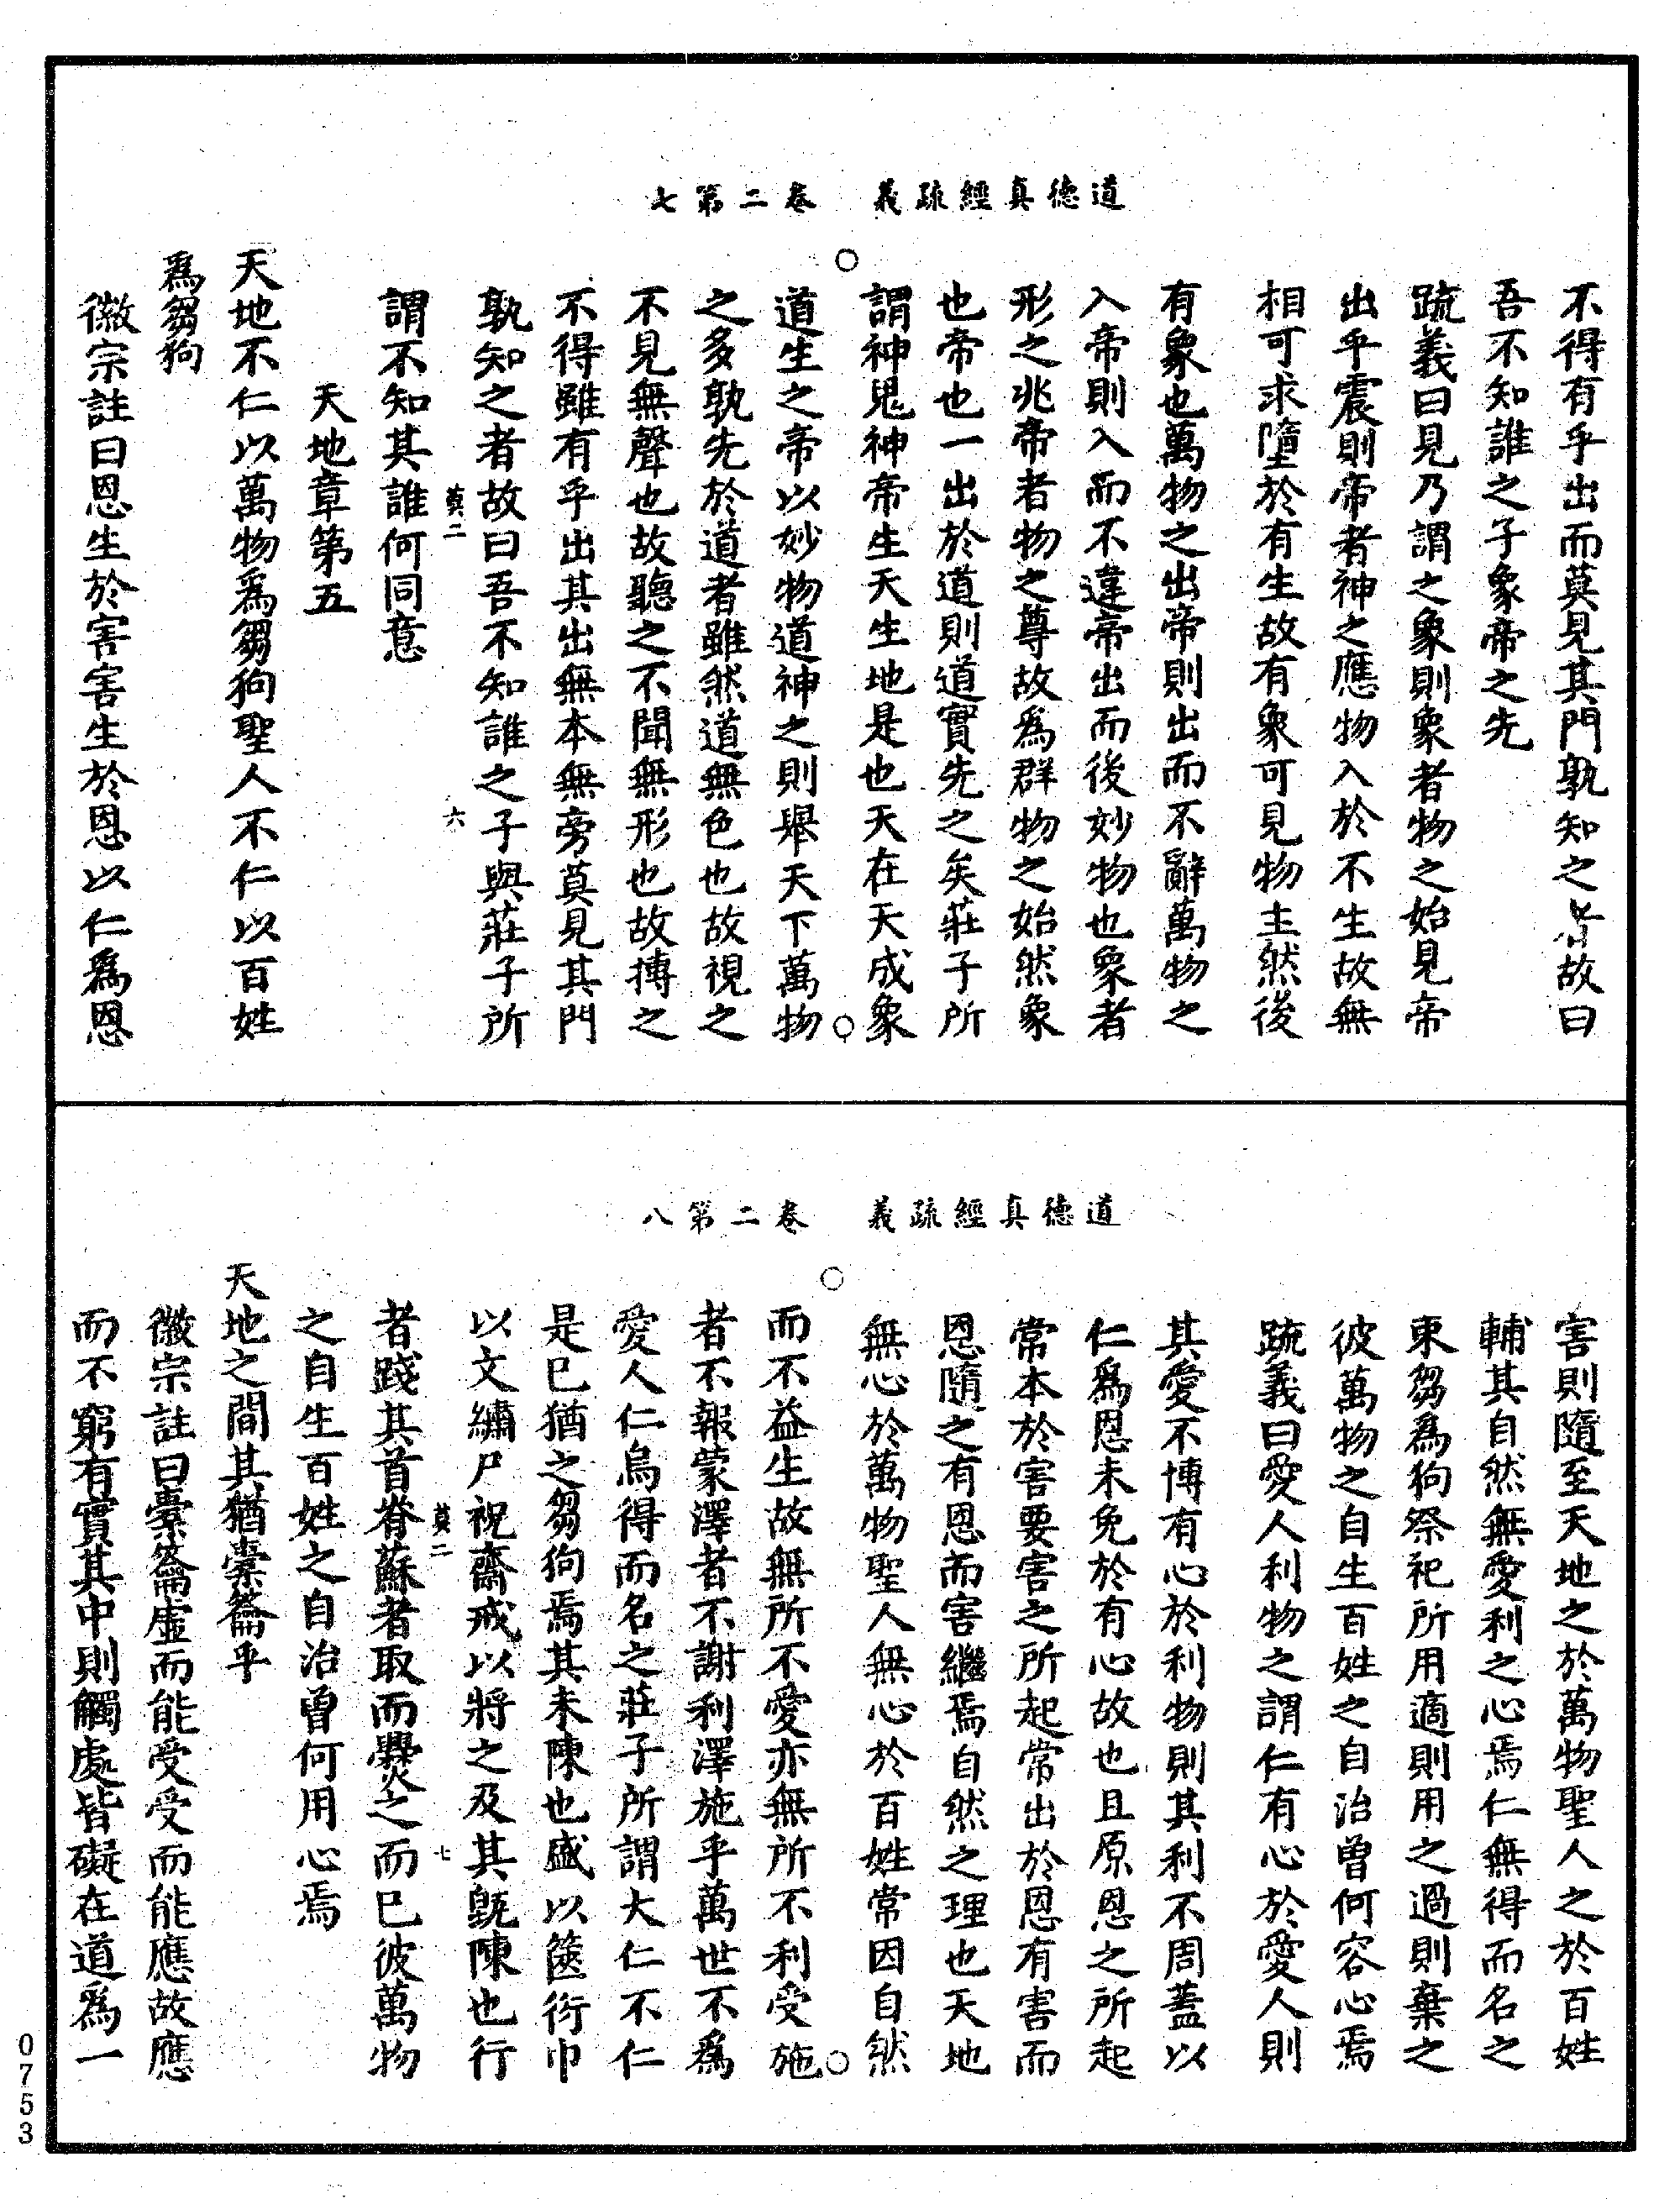 道德真經疏義　卷二第七
不得有乎出而莫見其門孰知之者故曰
吾不知誰之子象帝之先
疏義曰見乃謂之象則象者物之始見帝
出乎震則帝者神之應物入於不生故無
相可求墮於有生故有象可見物主然後
有象也萬物之出帝則出而不辭萬物之
入帝則入而不違帝出而後妙物也象者
形之兆帝者物之尊故爲群物之始然象
也帝也一出於道則道實先之矣莊子所
謂神鬼神帝生天生地是也天在天成象
道生之帝以妙物道神之則舉天下萬物
之多孰先於道者雖然道無色也故視之
不見無聲也故聽之不聞無形也故摶之
不得雖有乎出其出無本無旁莫見其門
孰知之者故曰吾不知誰之子與莊子所
莫二　六
謂不知其誰何同意
天地章第五
天地不仁以萬物爲芻狗聖人不仁以百姓
爲芻狗
徽宗註曰恩生於害害生於恩以仁爲恩
道德真經疏義　卷二第八
害則隨至天地之於萬物聖人之於百姓
輔其自然無愛利之心焉仁無得而名之
束芻爲狗祭祀所用適則用之過則棄之
彼萬物之自生百姓之自治曾何容心焉
疏義曰愛人利物之謂仁有心於愛人則
其愛不博有心於利物則其利不周蓋以
仁爲恩未免於有心故也且原恩之所起
常本於害要害之所起常出於恩有害而
恩隨之有恩而害繼焉自然之理也天地
無心於萬物聖人無心於百姓常因自然
而不益生故無所不愛亦無所不利受施
者不報蒙澤者不謝利澤施乎萬世不爲
愛人仁烏得而名之莊子所謂大仁不仁
是巳猶之芻狗焉其未陳也盛以篋衍巾
以文繡尸祝齋戒以將之及其既陳也行
莫二　七
者踐其首脊蘇者取而爨之而巳彼萬物
之自生百姓之自治曾何用心焉
天地之間其猶橐籥乎
徽宗註曰橐籥虛而能受受而能應故應
而不窮有實其中則觸處皆礙在道爲一
0753